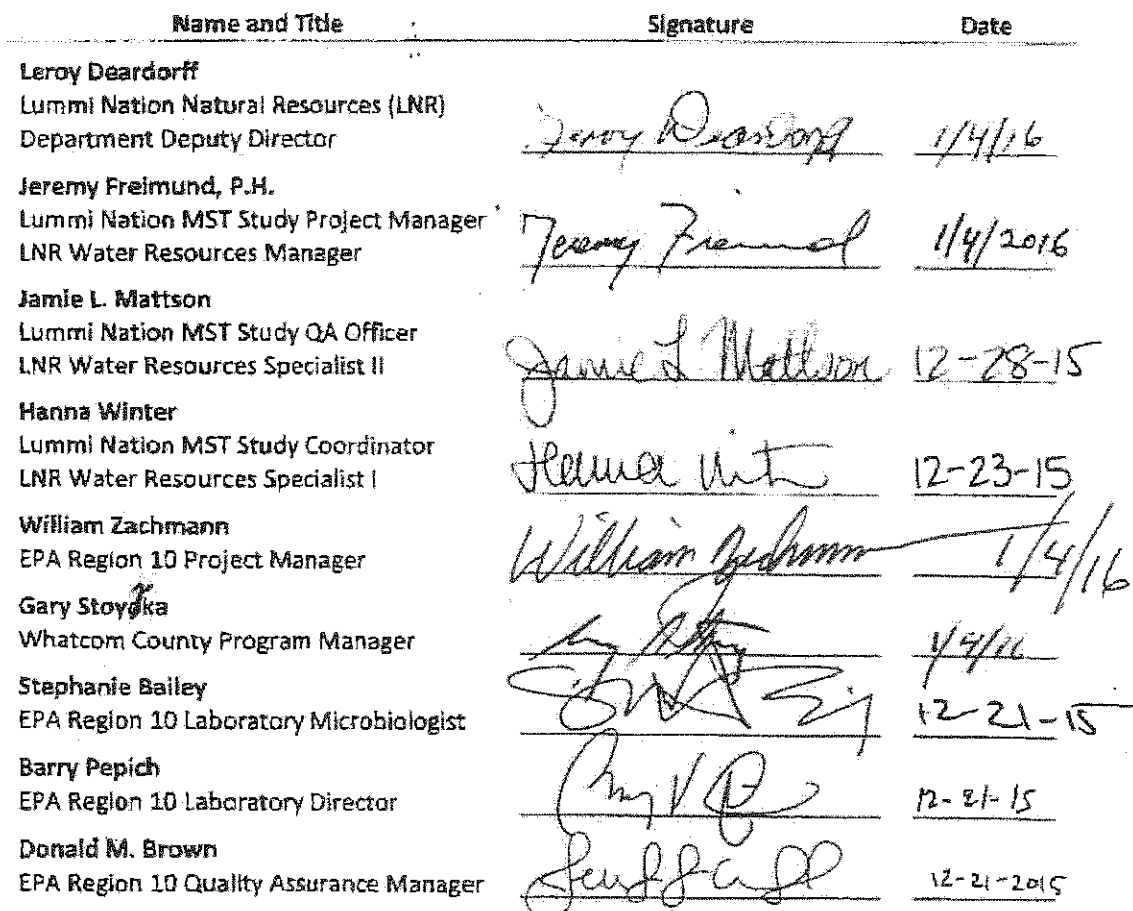 Name and Title Signature Date
Leroy Deardorff
Lummi Nation Natural Resources (LNR)
Department Deputy Director Leroy Deardorff 1/4/16
Jeremy Freimund, P.H.
Lummi Nation MST Study Project Manager
LNR Water Resources Manager Jeremy Freimund 1/4/2016
Jamie L. Mattson
Lummi Nation MST Study QA Officer
LNR Water Resources Specialist II Jamie L Mattson 12-28-15
Hanna Winter
Lummi Nation MST Study Coordinator
LNR Water Resources Specialist I Hanna 12-23-15
William Zachmann
EPA Region 10 Project Manager William Zachmann 1/4/16
Gary Stoyka
Whatcom County Program Manager
Stephanie Bailey
EPA Region 10 Laboratory Microbiologist 12-21-15
Barry Pepich
EPA Region 10 Laboratory Director 12-21-15
Donald M. Brown
EPA Region 10 Quality Assurance Manager 12-21-2015